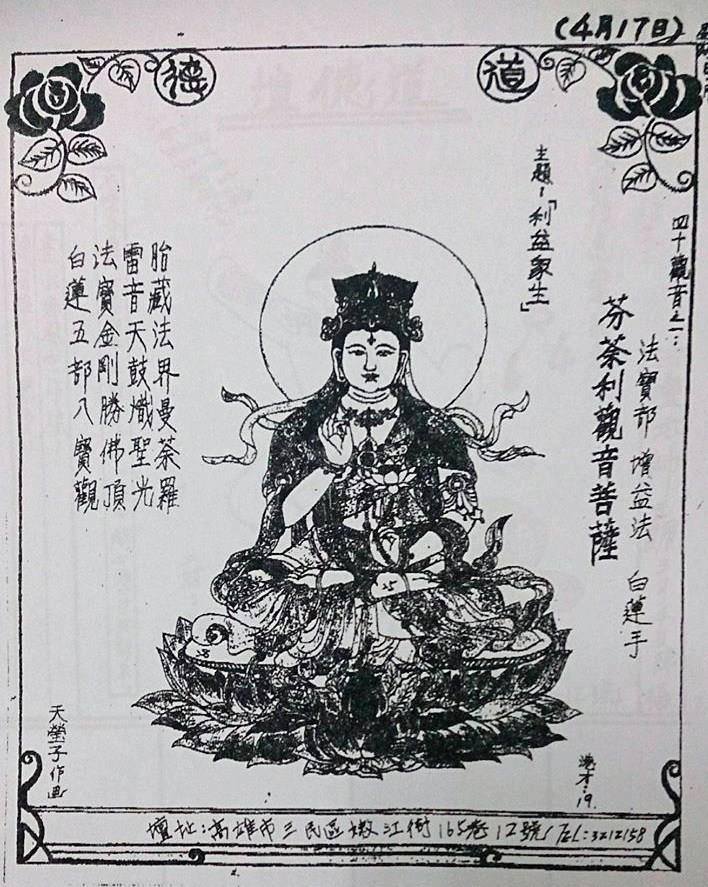 (4月17日)
道
德
四十觀音之一:
法寶部 增益法 白蓮手
芬荼利觀音菩薩
主題-「利益眾生」
胎藏法界曼荼羅
雷音天鼓熾聖光
法寶金剛勝佛頂
白蓮五部八寶觀
天瑩子作画
19.
壇址:高雄市三民區嫩江街165巷12號/TEL:3212158